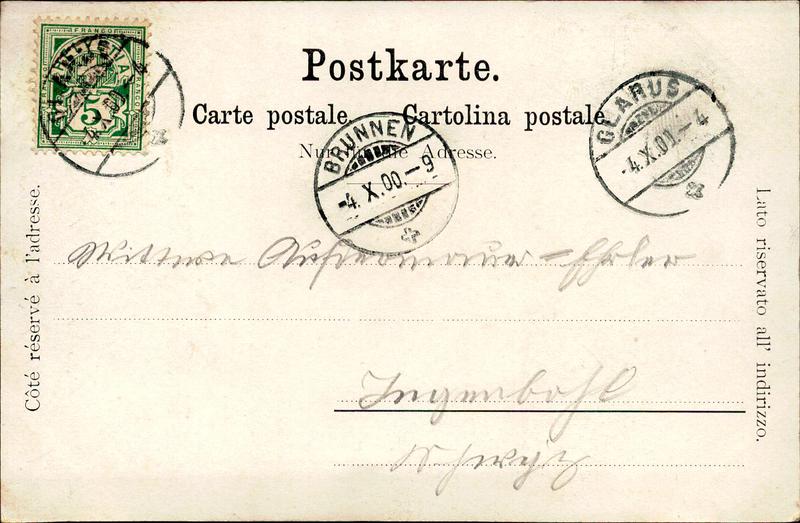 FRANCO
5
Postkarte.
Carte postale. Cartolina postale.
Nur für die Adresse.
BRUNNEN
-4.X.00.-9
GLARUS
-4.X.00.-4
Côté réservé à l'adresse.
Lato riservato all' indirizzo.
Wittwe Aufdermaur-Ehrler
Ingenbohl
Schwyz